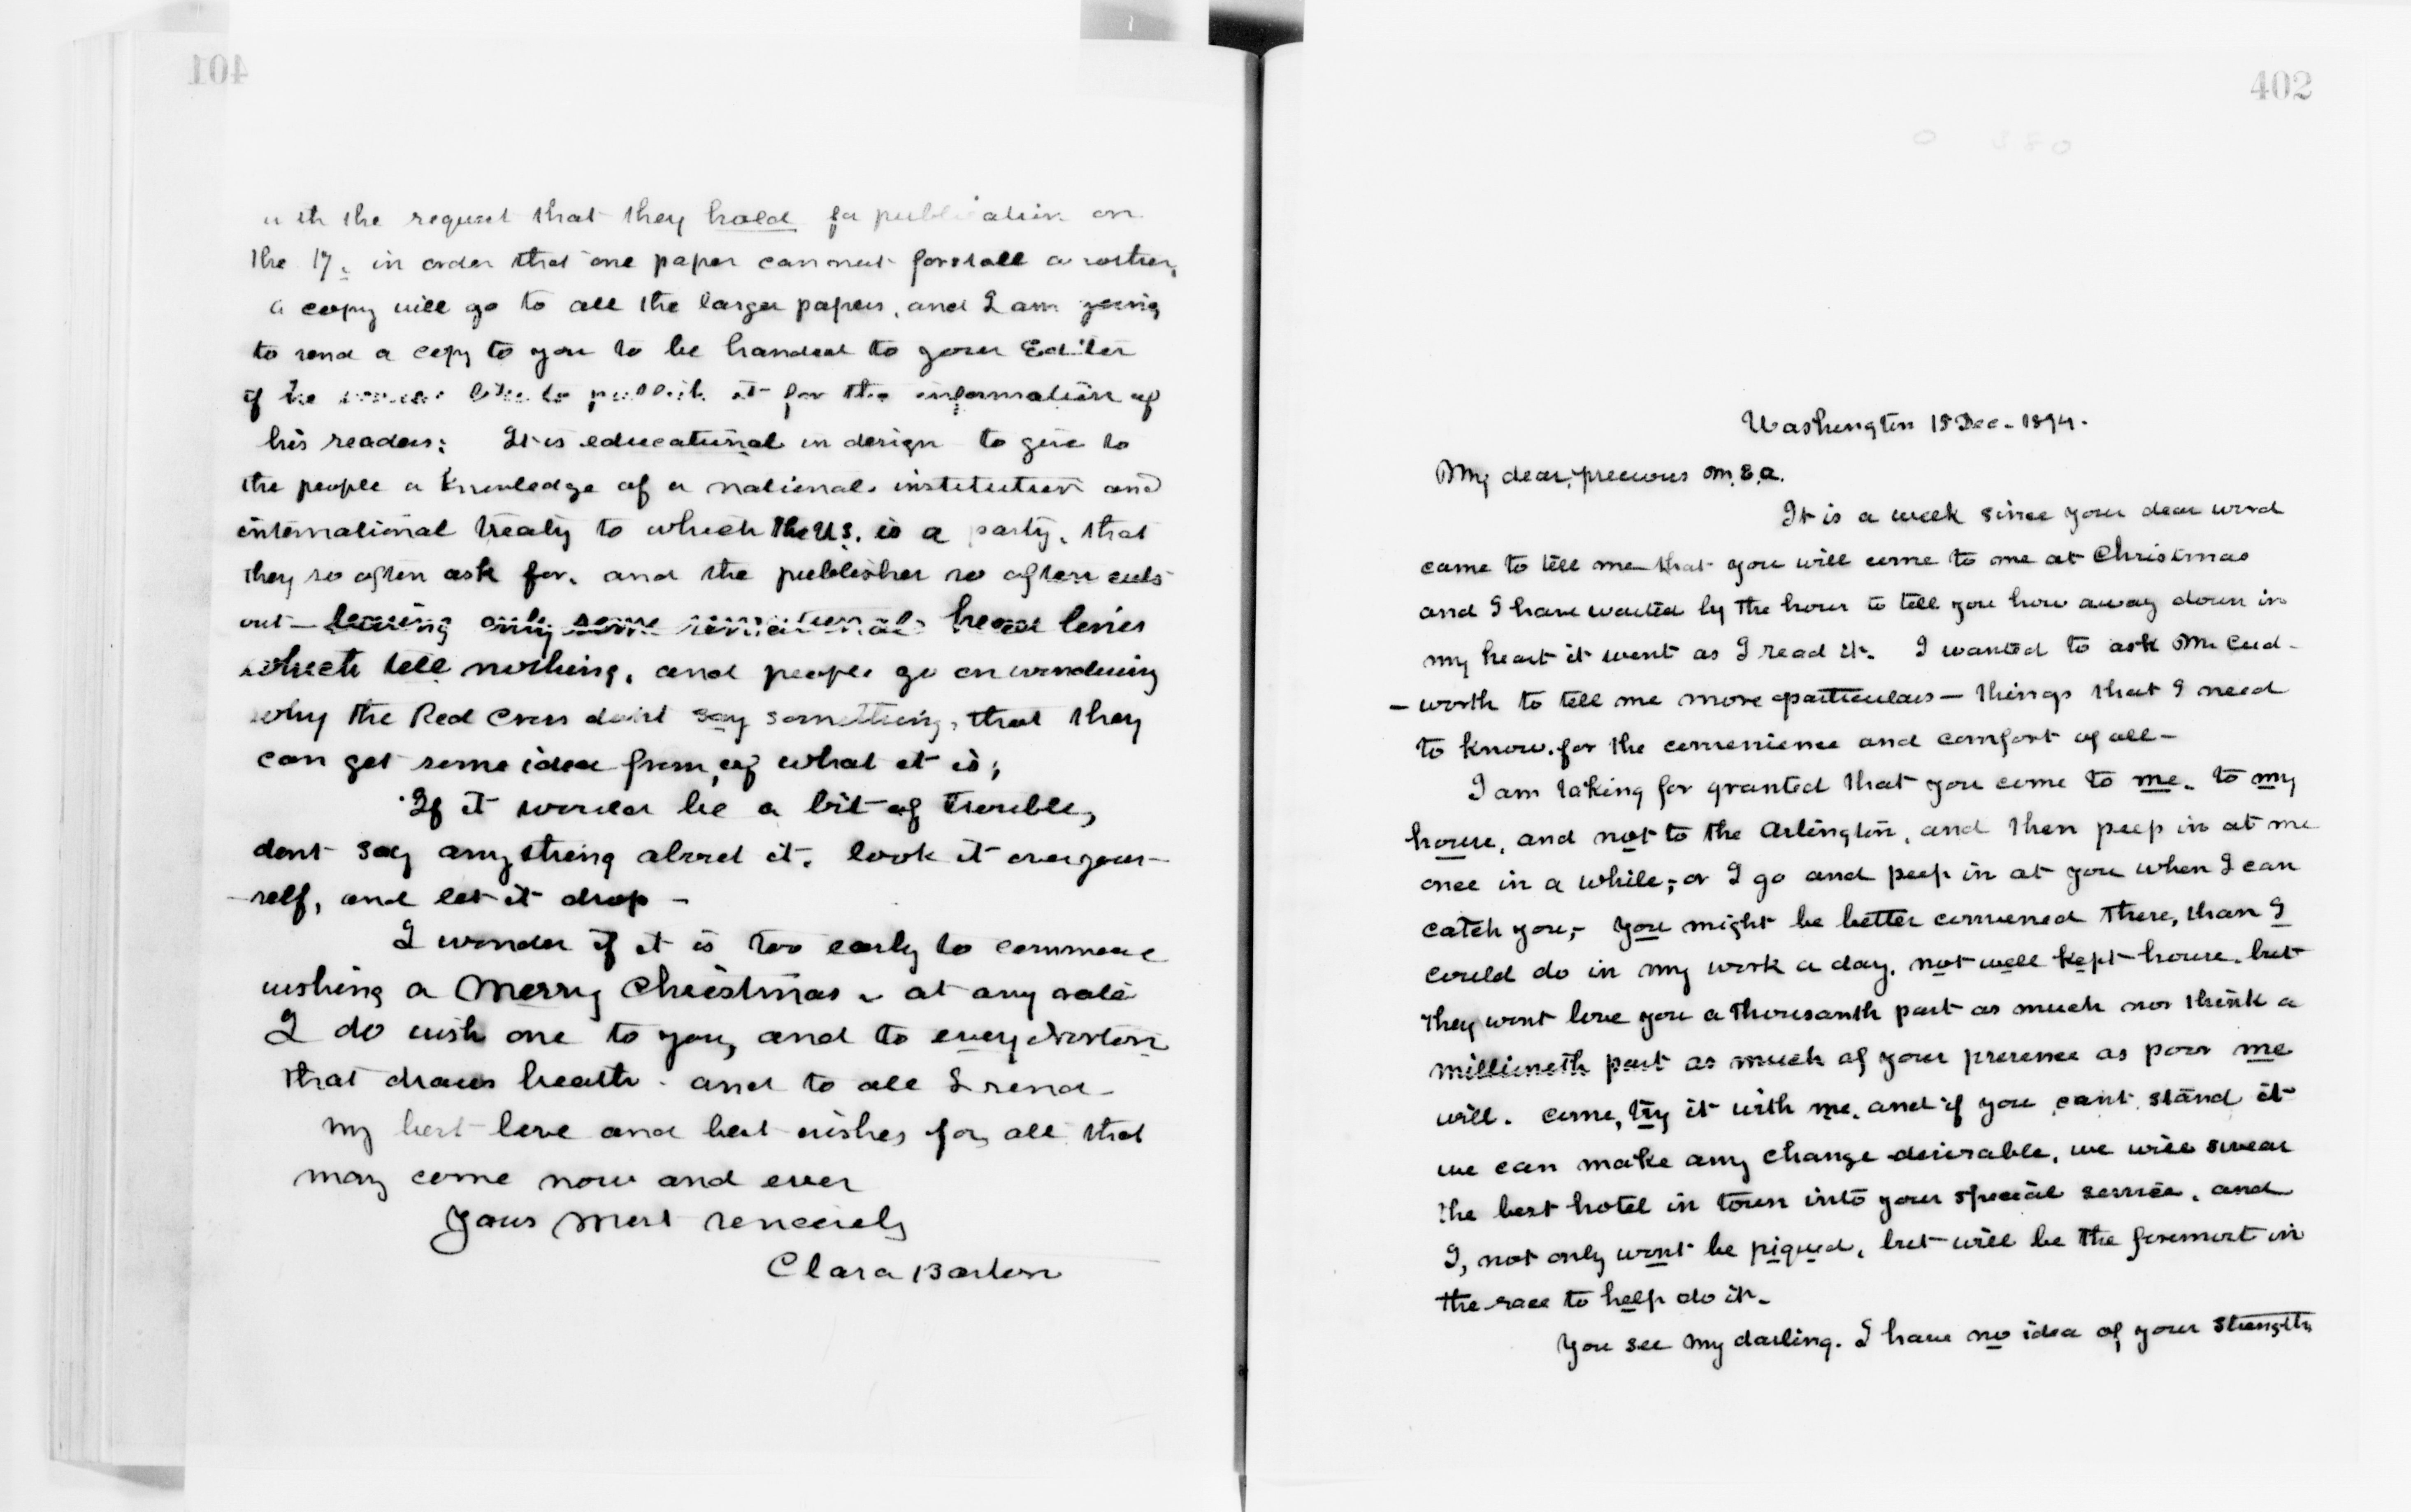 401
with the request that they hold for publication on
the 17, in order that one paper cannot forstall another,
a copy will go to all the larger papers, and I am going
to send a copy to you to be handed to your Editor
if he would like to publish it for the information of
his readers; It is educational in design to give to
the people a knowledge of a national institution and
international treaty to which the U.S. is a party, that
they so often ask for, and the publisher so often cuts
out – leaving only some sensational head lines
which tell nothing, and people go on wondering
why the Red Cross dont say something, that they
can get some idea from, of what it is;
If it would be a bit of trouble,
dont say anything about it. look it over your-
-self, and let it drop –
I wonder if it is too early to commence
wishing a Merry Christmas – at any rate
I do wish one to you, and to every Norton
that draws breath. and to all I send
my best love and best wishes for all that
may come now and ever
Yours most sincerely
Clara Barton
402
Washington 18 Dec. 1894.
My dear, precious M.E.A.
It is a week since your dear word
came to tell me that you will come to me at Christmas
and I have waited by the hour to tell you how away down in
my heart it went as I read it. I wanted to ask Mr Cud-
- worth to tell me more particulars – things that I need
to know. for the convenience and comfort of all –
I am taking for granted that you come to me. to my
house, and not to the Arlington, and then peep in at me
once in a while; or I go and peep in at you when I can
catch you; – You might be better convened there, than I
could do in my work a day. not well kept house. but
they wont love you a thousanth part as much nor think a
millioneth part as much of your presence as poor me
will. come, try it with me. and if you cant stand it
we can make any change desirable, we will swear
the best hotel in town into your special service, and
I, not only wont be piqued, but will be the foremost in
the race to help do it.
You see my darling. I have no idea of your strength